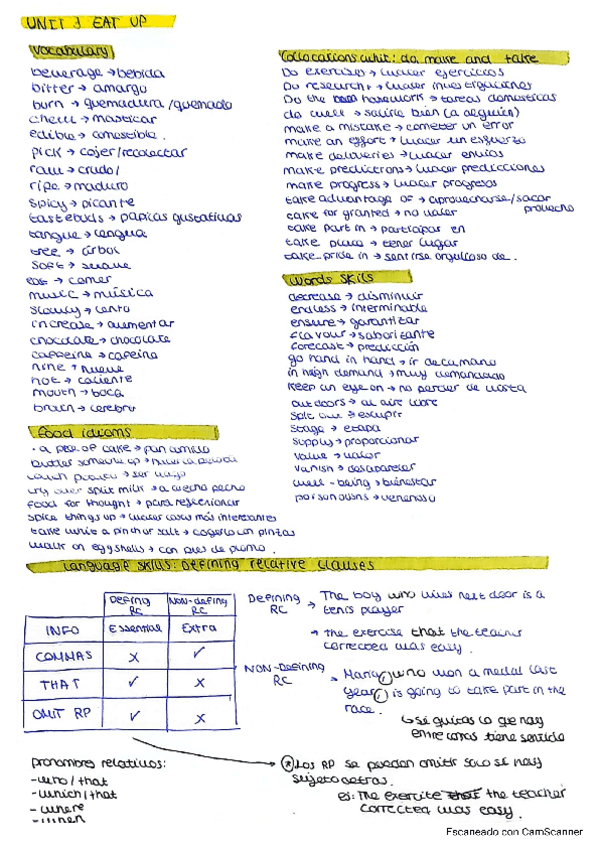 UNIT 3 EAT UP
Vocabulary
beverage → bebida
bitter → amargo
burn → quemadura /quemado
chew → masticar
edible → comestible.
pick → cojer/recolectar
raw → crudo/
ripe → maduro
spicy → picante
tastebuds → papilas gustativas
tongue → lengua
tree → árbol
soft → suave
eat → comer
music → música
slowly → lento
increase → aumentar
chocolate → chocolate
caffeine → cafeína
nine → nueve
hot → caliente
mouth → boca
brain → cerebro
Food idioms
· a piece of cake → pan comido
butter someone up →
couch potato → ser vago
cry over spilt milk → a hecho pecho
food for thought → para reflexionar
spice things up → hacer cosas más interesantes
take with a pinch of salt → cogerlo con pinzas
walk on eggshells → con pies de plomo.
Collocations whit: do, make and take
Do exercises → hacer ejercicios
Do research → hacer investigaciones
Do the housework → tareas domesticas
do well → salirle bien (a alguien)
make a mistake → cometer un error
make an effort → hacer un esfuerzo
make deliveries → hacer envios
make predictions → hacer predicciones
make progress → hacer progresos
take advantage of → aprovecharse/sacar provecho
take for granted → no valer
take part in → participar en
take place → tener lugar
take pride in → sentirse orgulloso de.
Words skills
decrease → disminuir
endless → interminable
ensure → garantizar
flavour → saborizante
forecast → predicción
go hand in hand → ir de la mano
in high demand → muy demandado
keep an eye on → no perder de vista
outdoors → al aire libre
spit out → escupir
stage → etapa
supply → proporcionar
value → valor
vanish → desaparecer
well-being → bienestar
poisonous → venenoso
Language skills: Defining relative clauses
Defining RC Non-defining RC
INFO Essential Extra
COMMAS x ✓
THAT ✓ x
OMIT RP ✓ x
DEFINING RC → The boy who lives next door is a tenis player
→ the exercise that the teacher corrected was easy.
NON-DEFINING RC → Maria, who won a medal last year, is going to take part in the race.
↳ si quitas lo que hay entre comas tiene sentido
pronombres relativos:
- who / that
- which / that
- where
- when
* Los RP se pueden omitir solo si hay sujeto detras.
ej: The exercise that the teacher corrected was easy.
Escaneado con CamScanner